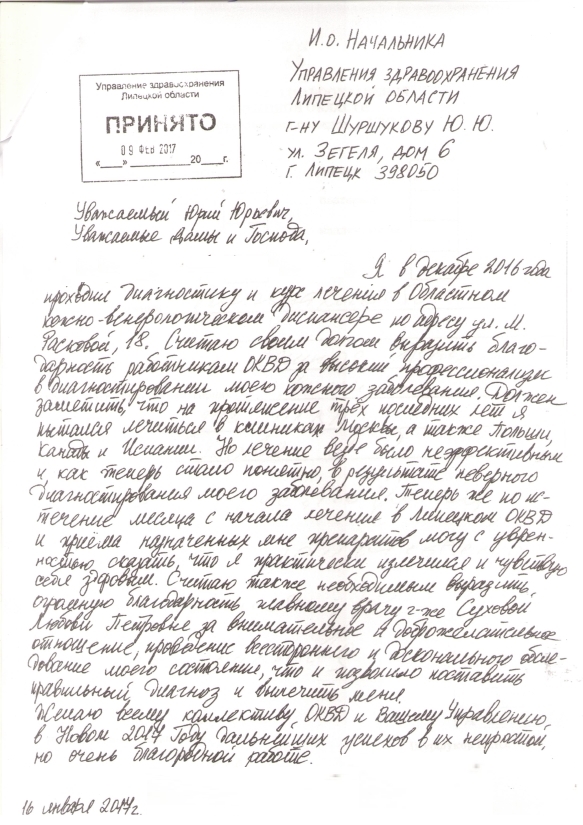 И.о. Начальника
Управления здравоохранения
Липецкой области
г-ну Шуршукову Ю.Ю.
ул. Зегеля, дом 6
г. Липецк 398050
Управление здравоохранения
Липецкой области
ПРИНЯТО
09 Фев 2017
«___» ________ 20___г.
Уважаемый Юрий Юрьевич,
Уважаемые Дамы и Господа,
Я в декабре 2016 года
проходил диагностику и курс лечения в Областном
кожно-венерологическом диспансере по адресу ул. М.
Расковой, 18. Считаю своим долгом выразить благо-
дарность работникам ОКВД за высокий профессионализм
в диагностировании моего кожного заболевания. Должен
заметить, что на протяжение трёх последних лет я
пытался лечиться в клиниках Москвы, а также Польши,
Канады и Испании. Но лечение везде было неэффективным
и, как теперь стало понятно, в результате неверного
диагностирования моего заболевания. Теперь же по ис-
течение месяца с начала лечения в Липецком ОКВД
и приёма назначенных мне препаратов могу с уверен-
ностью сказать, что я практически излечился и чувствую
себя здоровым. Считаю также необходимым выразить
огромную благодарность главному врачу г-же Суховой
Любови Петровне за внимательное и доброжелательное
отношение, проведение всестороннего и досконального обсле-
дование моего состояния, что и позволило поставить
правильный диагноз и вылечить меня.
Желаю всему коллективу ОКВД и Вашему Управлению,
в Новом 2017 Году дальнейших успехов в их непростой,
но очень благородной работе.
16 января 2017г.